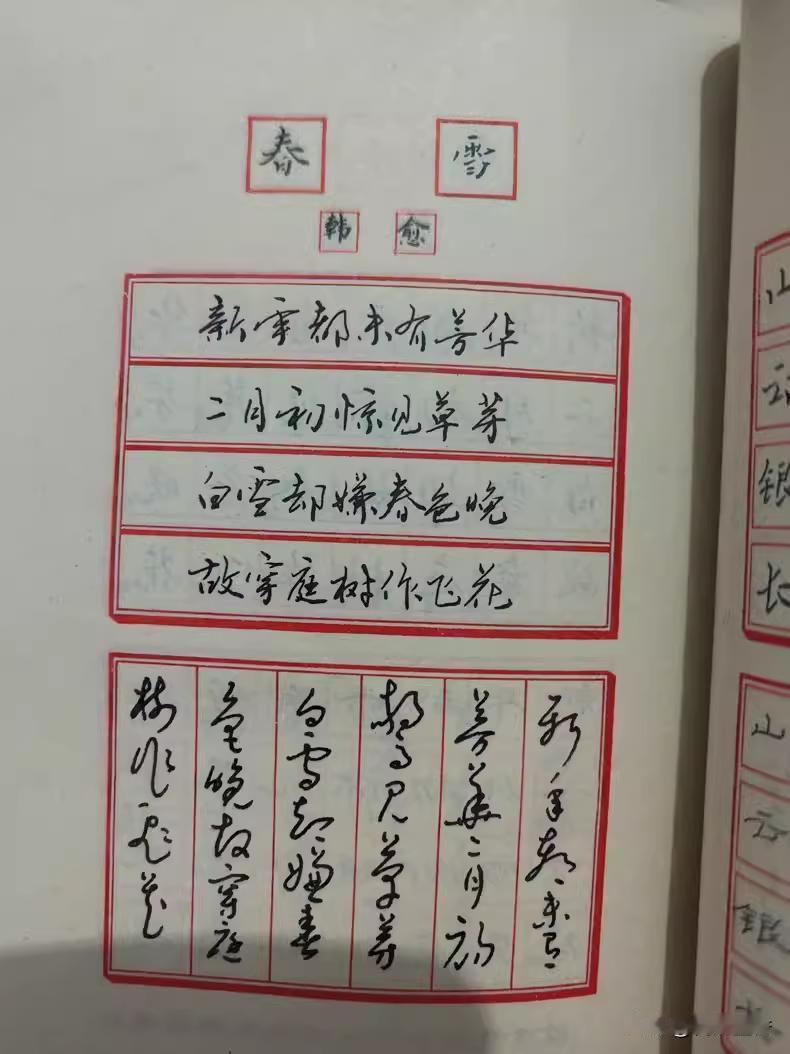 春 雪
韩 愈
新年都未有芳华
二月初惊见草芽
白雪却嫌春色晚
故穿庭树作飞花
新年都未有
芳华二月初
惊见草芽
白雪却嫌春
色晚故穿庭
树作飞花
山
云
银
长
山
云
银